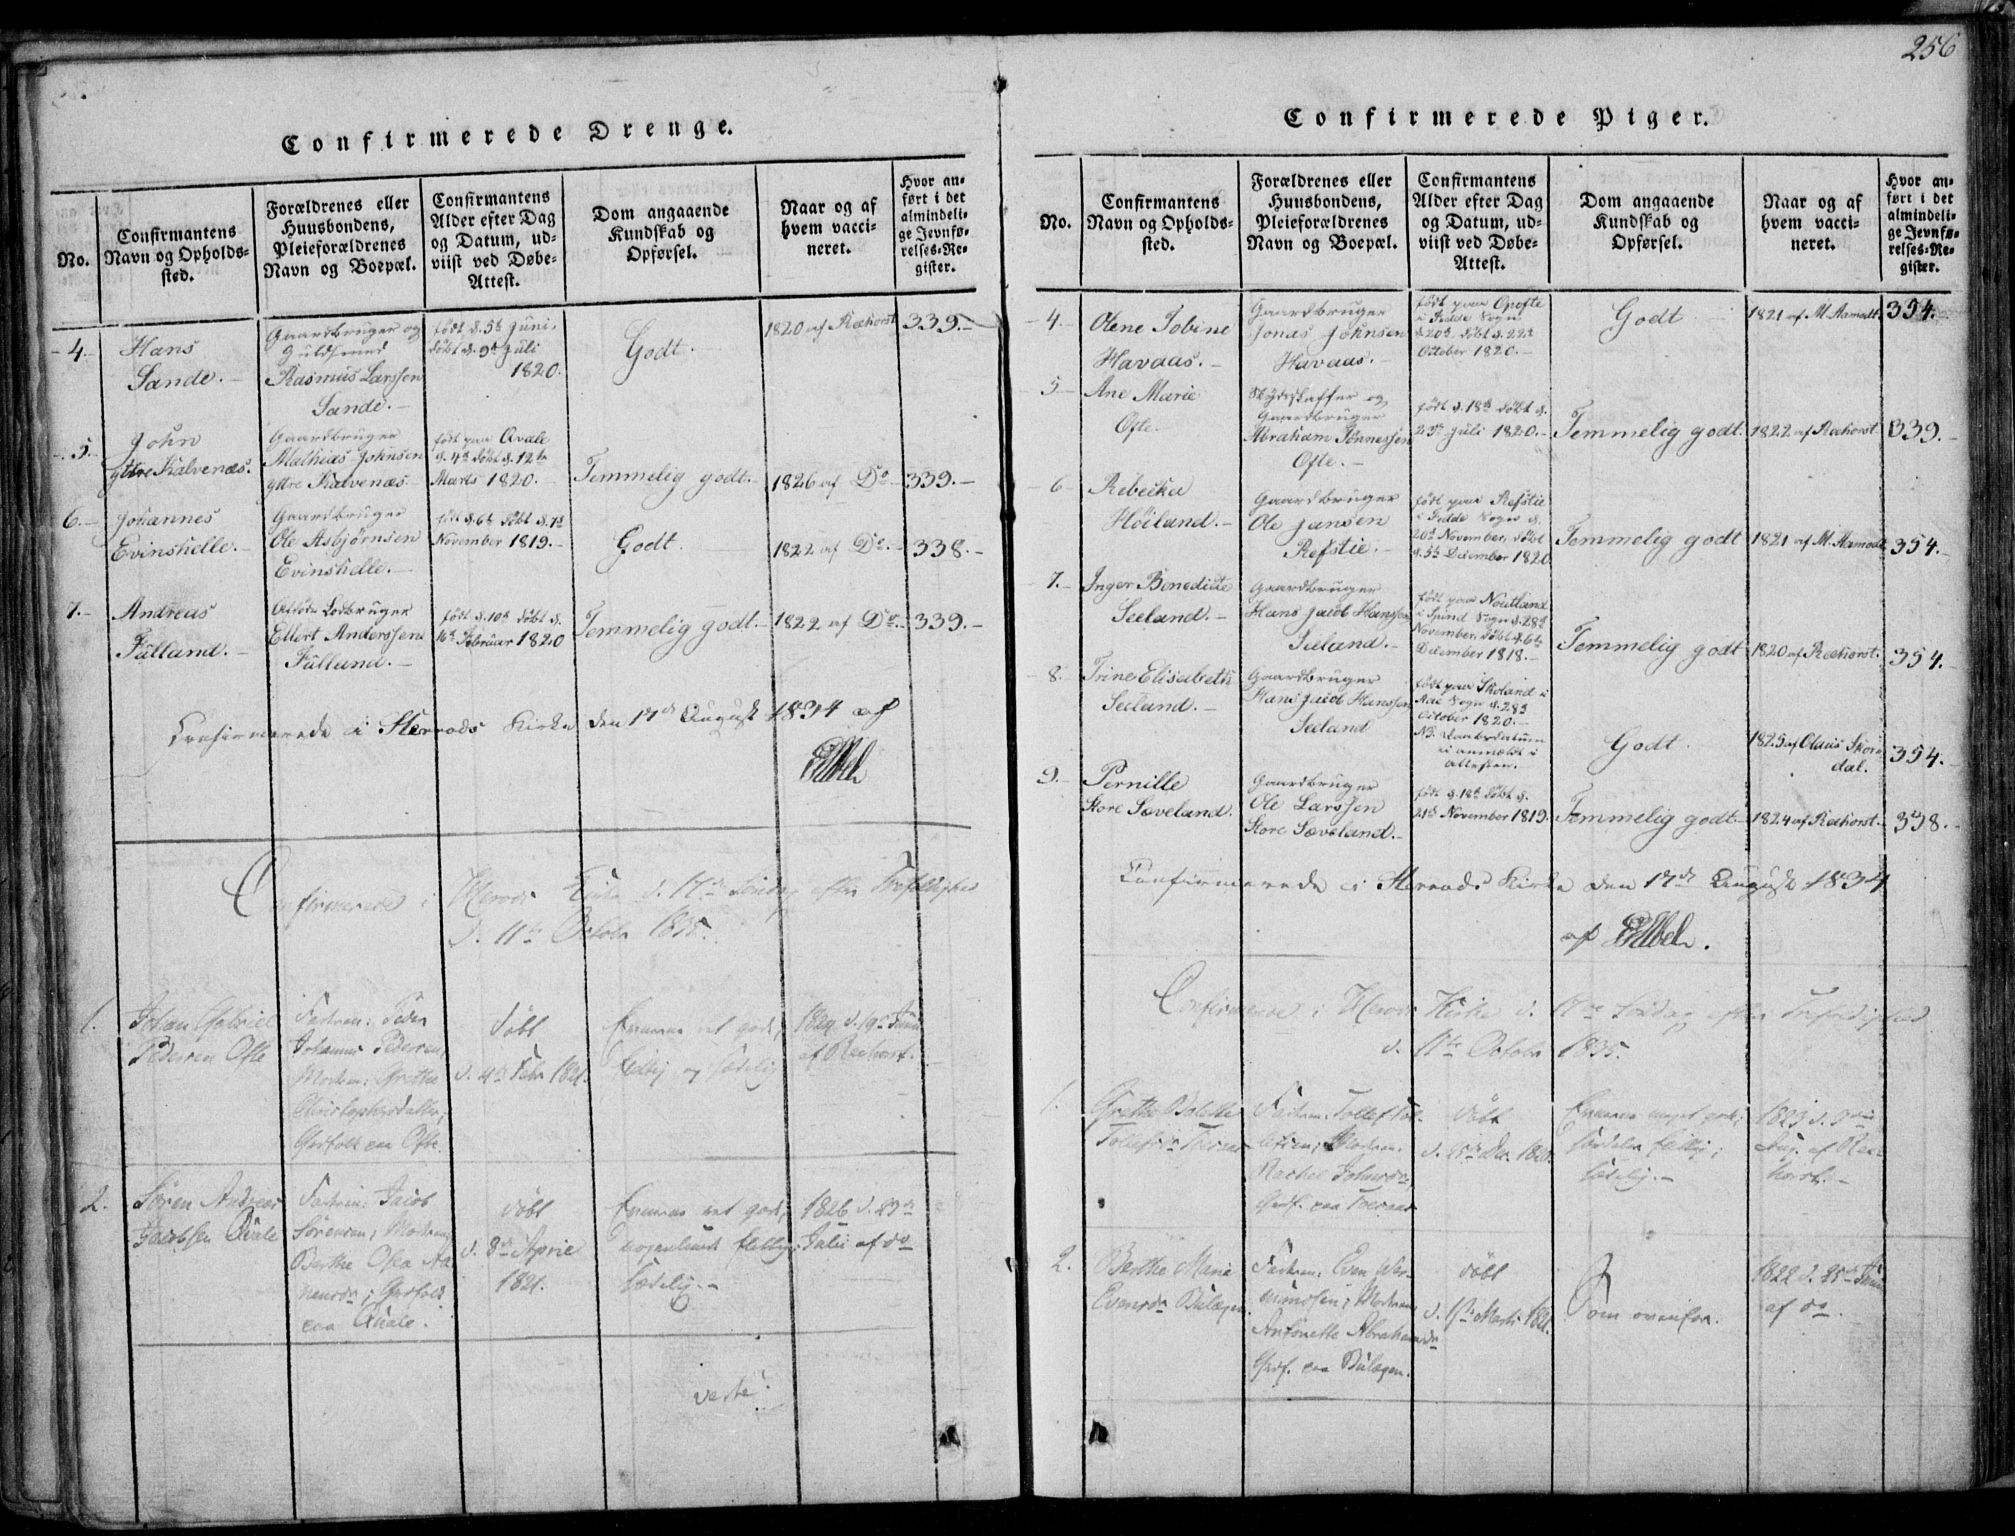 256
Confirmerede Drenge.
No.
Confirmantens
Navn og Opholds-
sted.
Forældrenes eller
Huusbondens,
Pleieforældrenes
Navn og Boepæl.
Confirmantens
Alder efter Dag
og Datum, ud-
viist ved Døbe-
Attest.
Dom angaaende
Kundskab og
Opførsel.
Naar og af
hvem vacci-
neret.
Hvor an-
ført i det
almindeli-
ge Jevnfø-
relses-Re-
gister.
4.
Hans
Sande.
Gaardbruger og
Guldsmed
Rasmus Larssen
Sande.
født d. 5te Juni,
døbt d. 9de Juli
1820.
Godt.
1820 af Rækorst
339.
5.
John
yttre Kalvenæs.
Gaardbruger
Mathias Johnsen
yttre Kalvenæs
født paa Qvale
d. 4de døbt d. 12te
Marts 1820.
Temmelig godt.
1826 af Do
339.
6.
Johannes
Evinshelle.
Gaardbruger
Ole Asbjørnsen
Evinshelle.
født d. 6te døbt d. 7de
November 1819.
Godt.
1822 af Do.
338.
7.
Andreas
Fälland.
Afdøde Lodbruger
Ellert Anderssen
Fälland.
født d. 10de døbt d.
16de Februar 1820
Temmelig godt.
1822 af Do.
339.
Confirmerede i Herrods Kirke den 17de August 1834 af
Abel
Confirmerede i Herrods Kirke d. 17de Søndag efter Trefoldighed
d. 11te Octobr 1835.
1.
Johan Gabriel
Pedersen Ofte
Fadren: Peder
Johannes Pedersen,
Modren: Grethe
Christophersdatter,
Gaardfolk paa Ofte.
døbt
d. 4de Febr 1821.
1829 d. 19de Juni
af Rækorst.
2.
Søren Andreas
Jacobsen Qvale
Fadren: Jacob
Sørensen; Modren,
Berthe Olea
paa Qvale.
døbt
d. 8de April
1821.
nogenlunde flittig;
sædelig.
1826 d. 23de
Juli af do
verte!
Confirmerede Piger.
No.
Confirmantens
Navn og Opholds-
sted.
Forældrenes eller
Huusbondens,
Pleieforældrenes
Navn og Boepæl.
Confirmantens
Alder efter Dag
og Datum, ud-
viist ved Døbe-
Attest.
Dom angaaende
Kundskab og
Opførsel.
Naar og af
hvem vacci-
neret.
Hvor an-
ført i det
almindeli-
ge Jevnfø-
relses-Re-
gister.
4.
Olene Tobine
Havaas.
Gaardbruger
Jonas Johnsen
Havaas.
født paa Opofte
i Fedde Sogn
d. 20de døbt d. 22de
October 1820.
Godt
1821 af M. Aamodt.
354.
5
Ane Marie
Ofte
Skydsskaffer og
Gaardbruger
Abraham Tønnessen
Ofte.
født d. 18de døbt d.
23de Juli 1820.
Temmelig godt.
1822 af Rækorst
339.
6
Rebecka
Höiland.
Gaardbruger
Ole Jansen
Refstie.
født paa Refstie
i Fedde Sogn d.
20de November, døbt
d. 5te December 1820
Temmelig godt
1821 af M. Aamodt
354.
7.
Inger Benedicte
Seeland.
Gaardbruger
Hans Jacob Hanssen
Seeland.
født paa Noutland
i Spind Sogn d. 28de
November, døbt d. 6te
December 1818.
Temmelig godt
1820 af Rækorst.
354.
8.
Trine Elisabeth
Seeland.
Gaardbruger
Hans Jacob Hanssen
Seeland
født paa Skoland i
Aae Sogn d. 28de
October 1820.
NB. Daabsdatum
ei anmeldt i
Attesten.
Godt.
1825 af Olaus Skor-
dal.
354.
9.
Pernille
Store Sæveland.
Gaardbruger
Ole Larssen
Store Sæveland.
født d. 18de døbt d.
21de November 1819.
Temmelig godt
1824 af Rækorst.
338.
Confirmerede i Herrods Kirke den 17de August 1834
af Abel.
Confirmerede i Herrods Kirke d. 17de Søndag efter Trefoldighed
d. 11te Octobr 1835.
1.
Grethe
Fadren: Tollef
Modren:
Rachel
døbt
d. 25de Dec. 1820.
sædelig.
1823 d. 9de
Aug. af Ræk-
horst.
2.
Berthe Marie
Evensdr Bulægen
Fadren: Even
Modren
Antonette Abrahamsdr
paa Bulægen.
døbt
d. 1ste Marts 1821.
Som ovenfor.
1822 d. 25de Juni
af do.